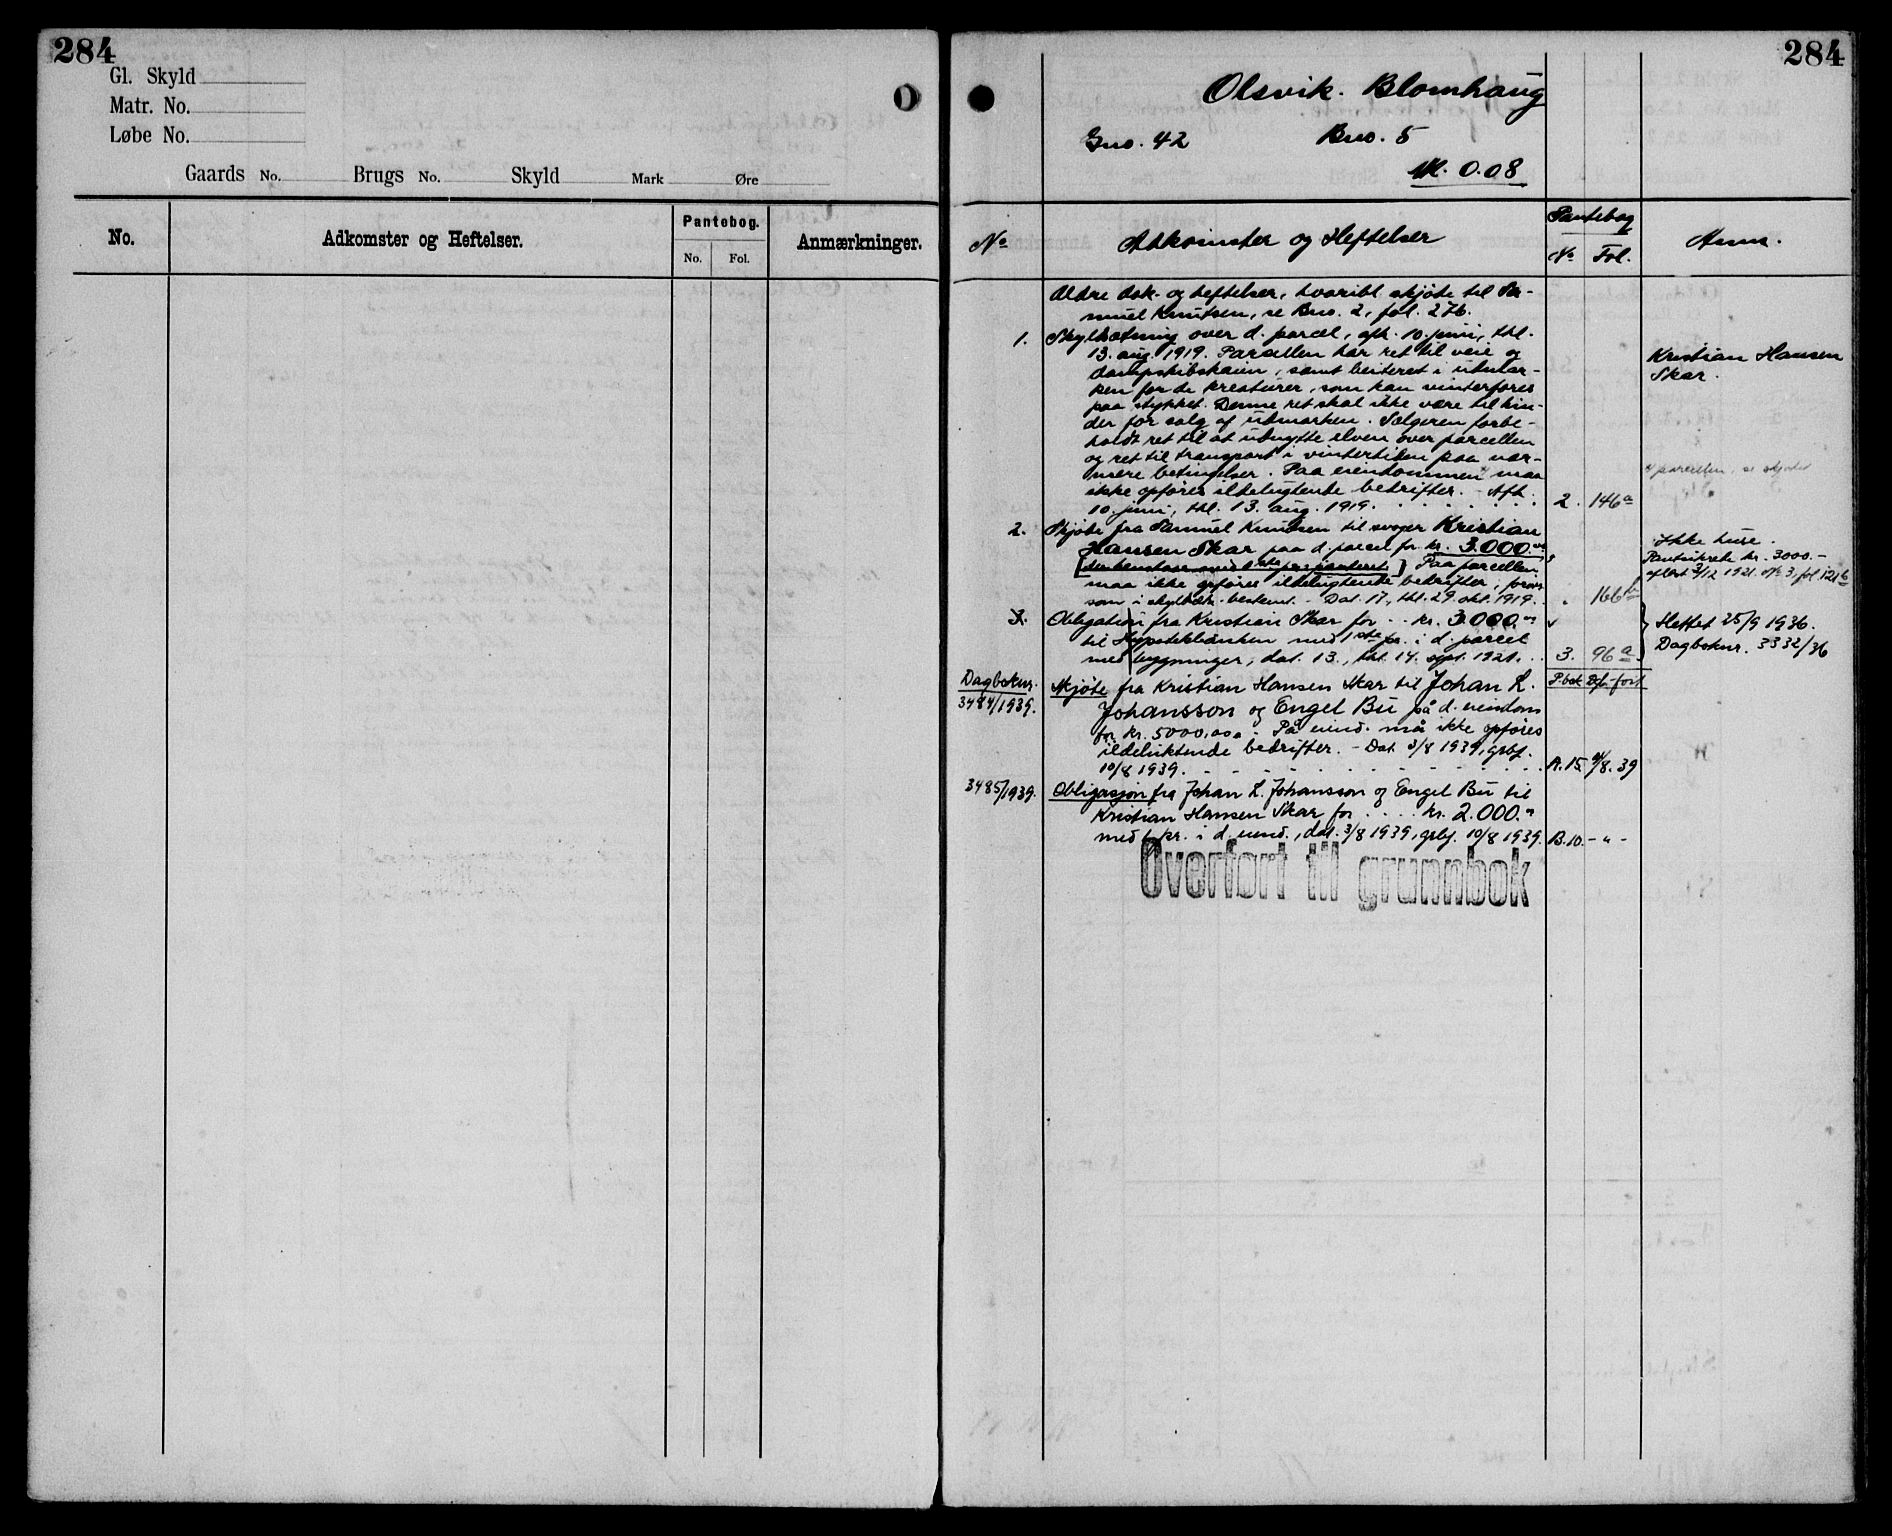 284
Gl. Skyld
Matr. No.
Løbe No.
Gaards No. Brugs No. Skyld Mark Øre
No. Adkomster og Heftelser. Pantebog. Anmærkninger.
No. Fol.
284
Olsvik. Blomhaug
Gno. 42 Bno. 5
M. 0.08
No Adkomster og Heftelser Pantebog Anm.
No. Fol.
Ældre dok. og heftelser, hvoribl. skjøte til Sa-
muel Knutsen, se Bno. 2, fol. 276.
1. Skyldsætning over d. parcel, afh. 10. juni, thl.
13. aug. 1919. Parcellen har ret til veie og
dampskibskaien, samt beiteret i utmar-
ken for de kreaturer, som kan vinterføres
paa stykket. Denne ret skal ikke være til hin-
der for salg af utmarken. Sælgeren forbe-
holdt ret til at utnytte elven over parcellen
og ret til transport i vintertiden paa nær-
mere betingelser. Paa eiendommen maa
ikke opføres ildelugtende bedrifter. - Afh.
10. juni, thl. 13. aug. 1919. 2. 146a
Kristian Hansen
Skar.
2. Skjøte fra Samuel Knutsen til svoger Kristian
Hansen Skar paa d. parcel for kr. 3.000.00
Paa parcellen
maa ikke opføres ildelugtende bedrifter,
som i skyldsætn. bestemt. - Dat. 17., thl. 29. okt. 1919. " 166b
Ikke huse.
kr. 3000.-
aflæst 3/12 1921. No 3, fol 121b
3. Obligation fra Kristian Skar for .. kr. 3.000.00
til Hypotekbanken med 1ste pr. i d. parcel
med bygninger, dat. 13., thl. 14. sept. 1921. .. 3. 96a
Slettet 25/9 1936.
Dagboknr. 3332/36
Dagboknr. P.bok Dgb.-ført
3484/1939. Skjøte fra Kristian Hansen Skar til Johan L.
Johansson og Engel Bu på d. eiendom
for kr. 5000,00. - På eiend. må ikke opføres
ildeluktende bedrifter. - Dat. 3/8 1939, grbf.
10/8 1939. A.15. /8. 39
3485/1939. Obligasjon fra Johan L. Johansson og Engel Bu til
Kristian Hansen Skar for .... kr. 2.000."
med 1 pr. i d. eiend., dat. 3/8 1939, grbf. 10/8 1939. B.10. - " -
Overført til grunnbok